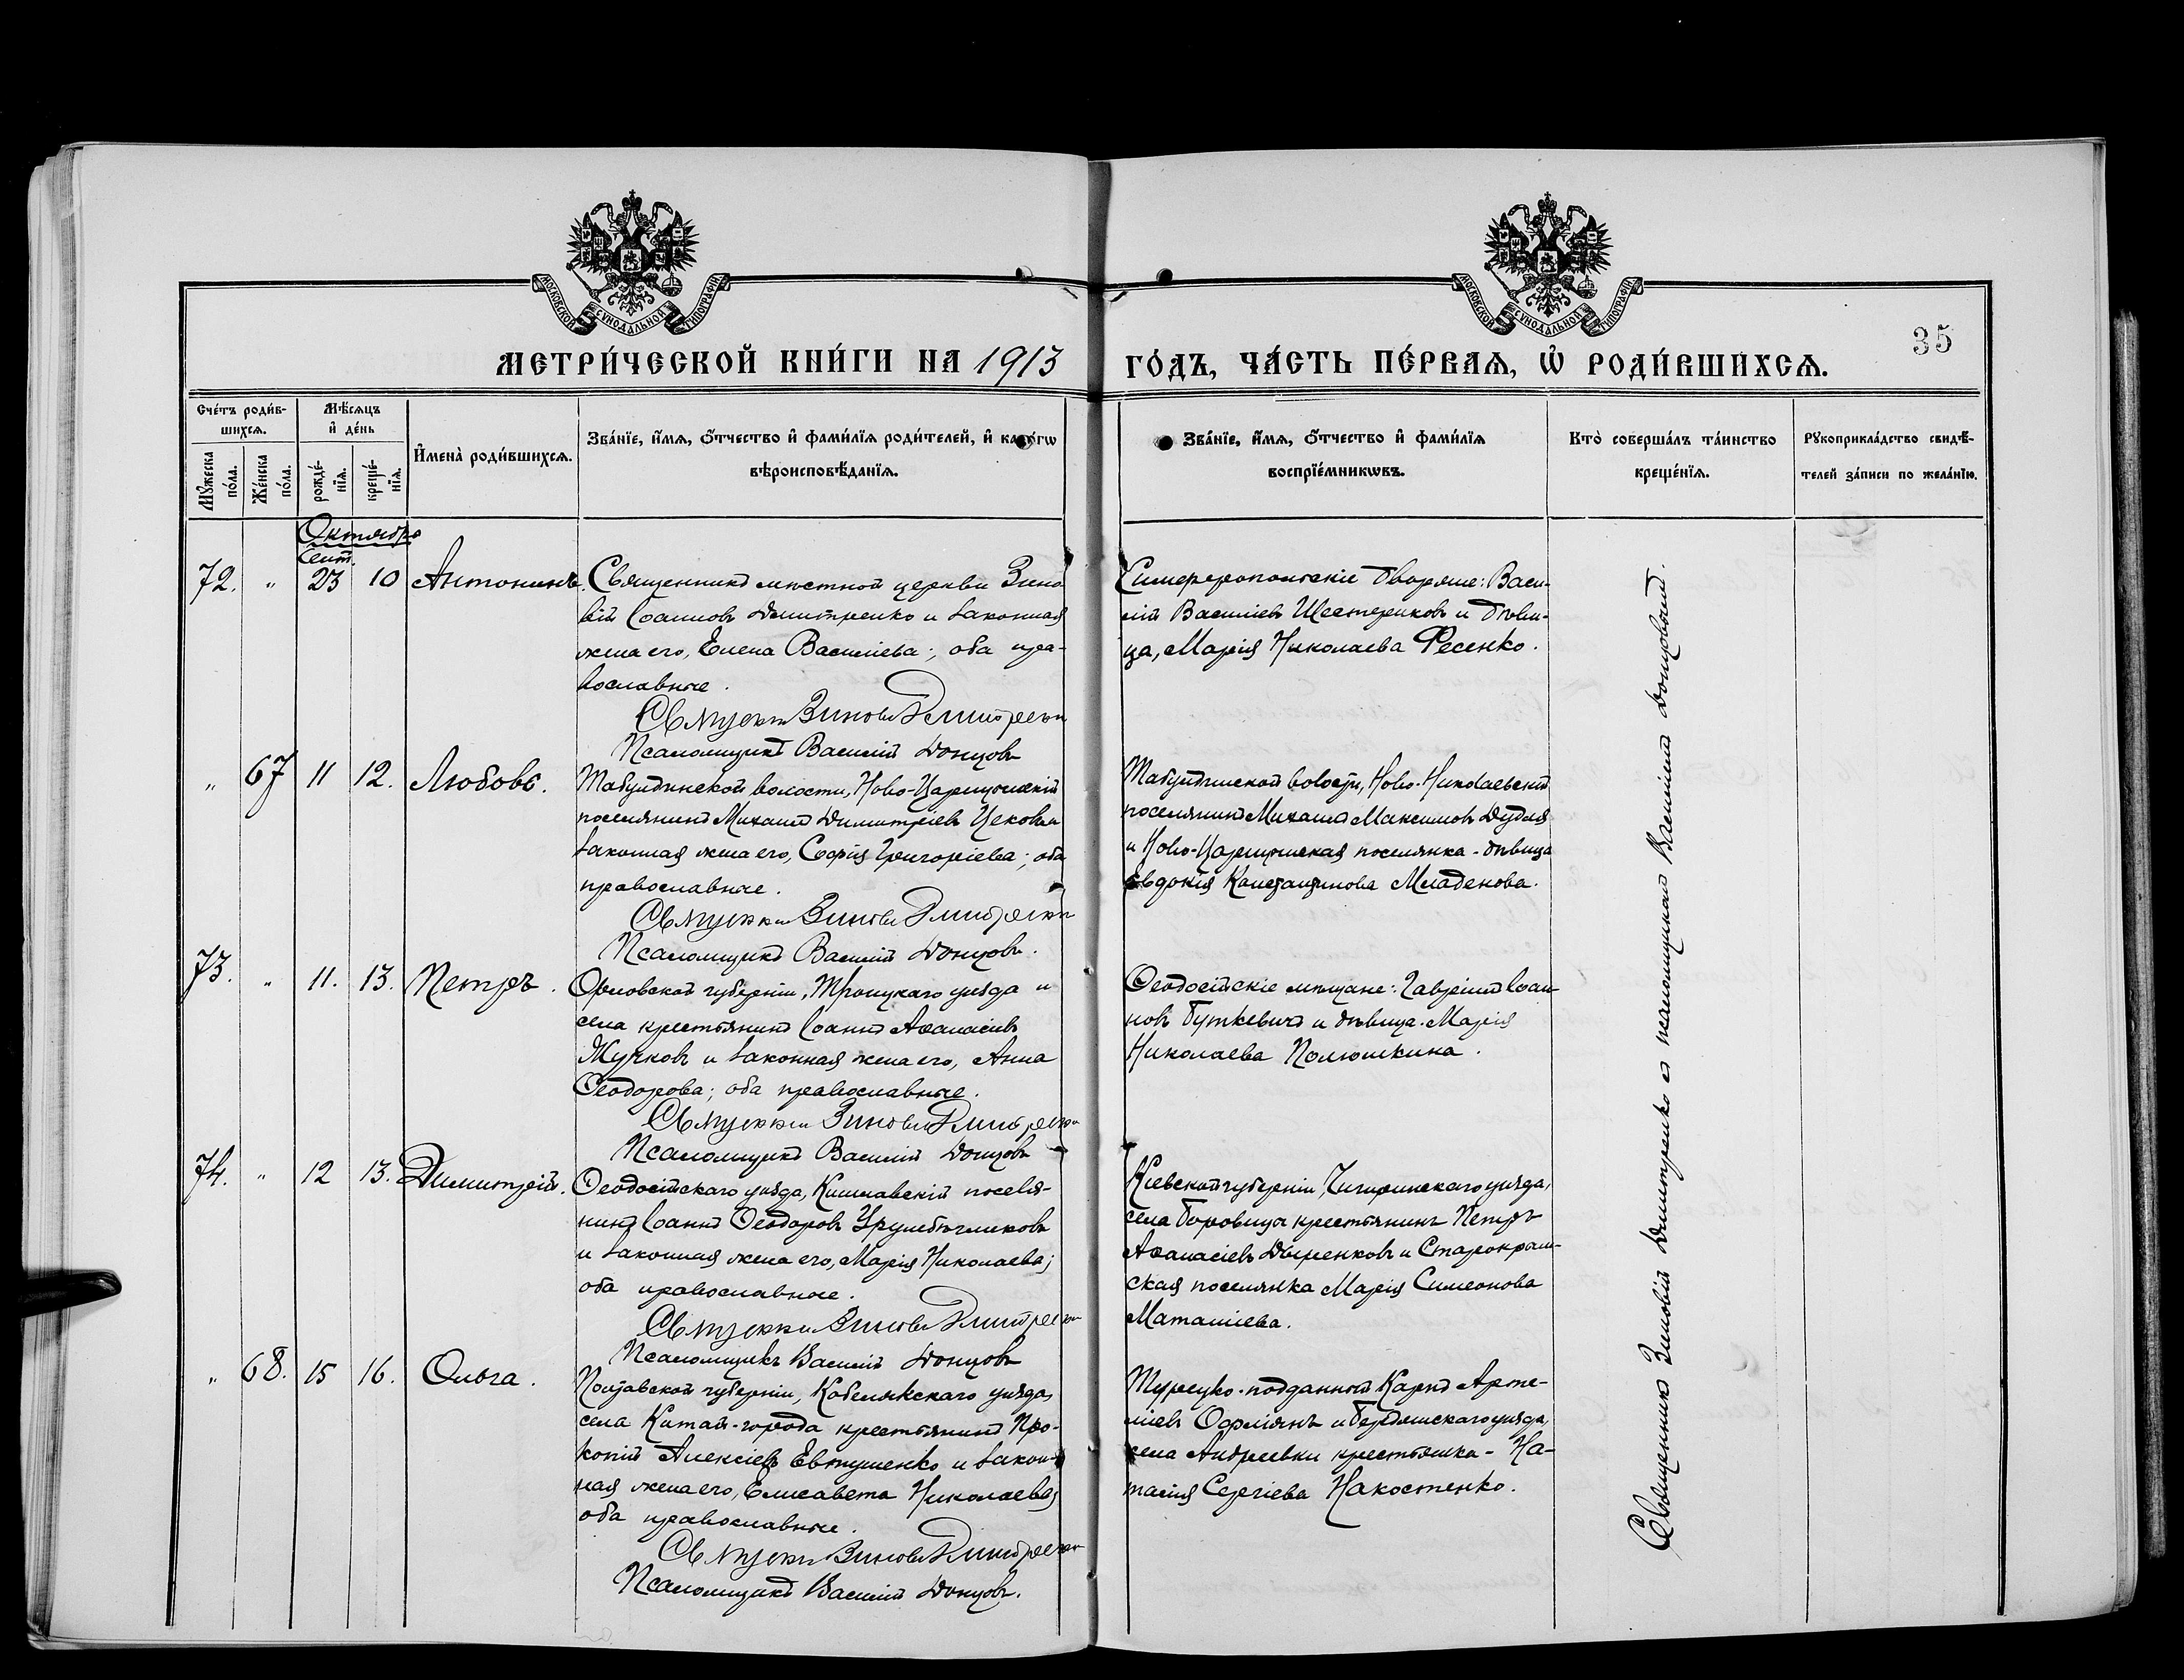 МОСКОВСКОЙ СѴНОДАЛЬНОЙ ТИПОГРАФІИ
МОСКОВСКОЙ СѴНОДАЛЬНОЙ ТИПОГРАФІИ
35
МЕТРИ́ЧЕСКОЙ КНИ́ГИ НА 1913 ГО́ДЪ, ЧА́СТЬ ПЕ́РВАѦ, Ѡ҆ РОДИ́ВШИХСѦ.
Сче́тъ роди́в-
шихсѧ.
Мꙋ́жеска по́ла.
Же́нска по́ла.
Мѣ́сѧцъ
и҆ де́нь
рожде́-
нїѧ.
креще́-
нїѧ.
И҆мена̀ роди́вшихсѧ.
Зва́нїе, и҆́мѧ, ѻ҆́тчество и҆ фами́лїѧ роди́телей, и҆ како́гѡ
вѣроисповѣ́данїѧ.
Зва́нїе, и҆́мѧ, ѻ҆́тчество и҆ фами́лїѧ
воспрїе́мникѡвъ.
Кто̀ соверша́лъ та́инство
креще́нїѧ.
Рꙋкоприкла́дство свидѣ́-
телей за́писи по жела́нїю.
Октябрь
Сент.
72. " 23 10 Антонинъ.
Священникъ мѣстной церкви Зино-
вій Іоанновъ Димитренко и законная
жена его, Елена Васильева; оба пра-
вославные.
Священникъ Зиновій Димитренко
Псаломщикъ Василій Донцовъ
Симферопольскіе дворяне: Васи-
лій Васильевъ Шестериковъ и дѣви-
ца, Марія Николаева Фесенко.
" 67 11 12. Любовь.
Табулдинской волости, Ново-Царицынскій
поселянинъ Михаилъ Димитріевъ Цековъ и
законная жена его, Софія Григоріева; оба
православные.
Священникъ Зиновій Димитренко
Псаломщикъ Василій Донцовъ.
Табулдинской волости, Ново-Николаевскій
поселянинъ Михаилъ Максимовъ Дудля
и Ново-Царицынская поселянка-дѣвица
Евдокія Константинова Младенова.
73. " 11. 13. Петръ.
Орловской губерніи, Троицкаго уѣзда и
села крестьянинъ Іоаннъ Аѳанасіевъ
Жучковъ и законная жена его, Анна
Ѳеодорова; оба православные.
Священникъ Зиновій Димитренко
Псаломщикъ Василій Донцовъ
Ѳеодосійскіе мѣщане: Гавріилъ Іоан-
новъ Буткевичъ и дѣвица Марія
Николаева Полюшкина.
74. " 12 13. Димитрій.
Ѳеодосійскаго уѣзда, Кишлавскій поселя-
нинъ Іоаннъ Ѳеодоровъ
и законная жена его, Марія Николаева;
оба православные.
Священникъ Зиновій Димитренко
Псаломщикъ Василій Донцовъ
Кіевской губерніи, Чигиринскаго уѣзда,
села Боровицы крестьянинъ Петръ
Аѳанасіевъ Дыренковъ и Старокрым-
ская поселянка Марія Симеонова
Маташева.
" 68. 15 16. Ольга.
Полтавской губерніи, Кобелякскаго уѣзда,
села Китай-города крестьянинъ Про-
копій Алексіевъ Евтушенко и закон-
ная жена его, Елисавета Николаева;
оба православные.
Священникъ Зиновій Димитренко
Псаломщикъ Василій Донцовъ.
Турецко-подданный Карпъ Арте-
міевъ Офліянъ и Бердянскаго уѣзда,
села Андреевки крестьянка - На-
талія Сергіева Накостенко.
Священникъ Зиновій Димитренко съ псаломщикомъ Василіемъ Донцовымъ.